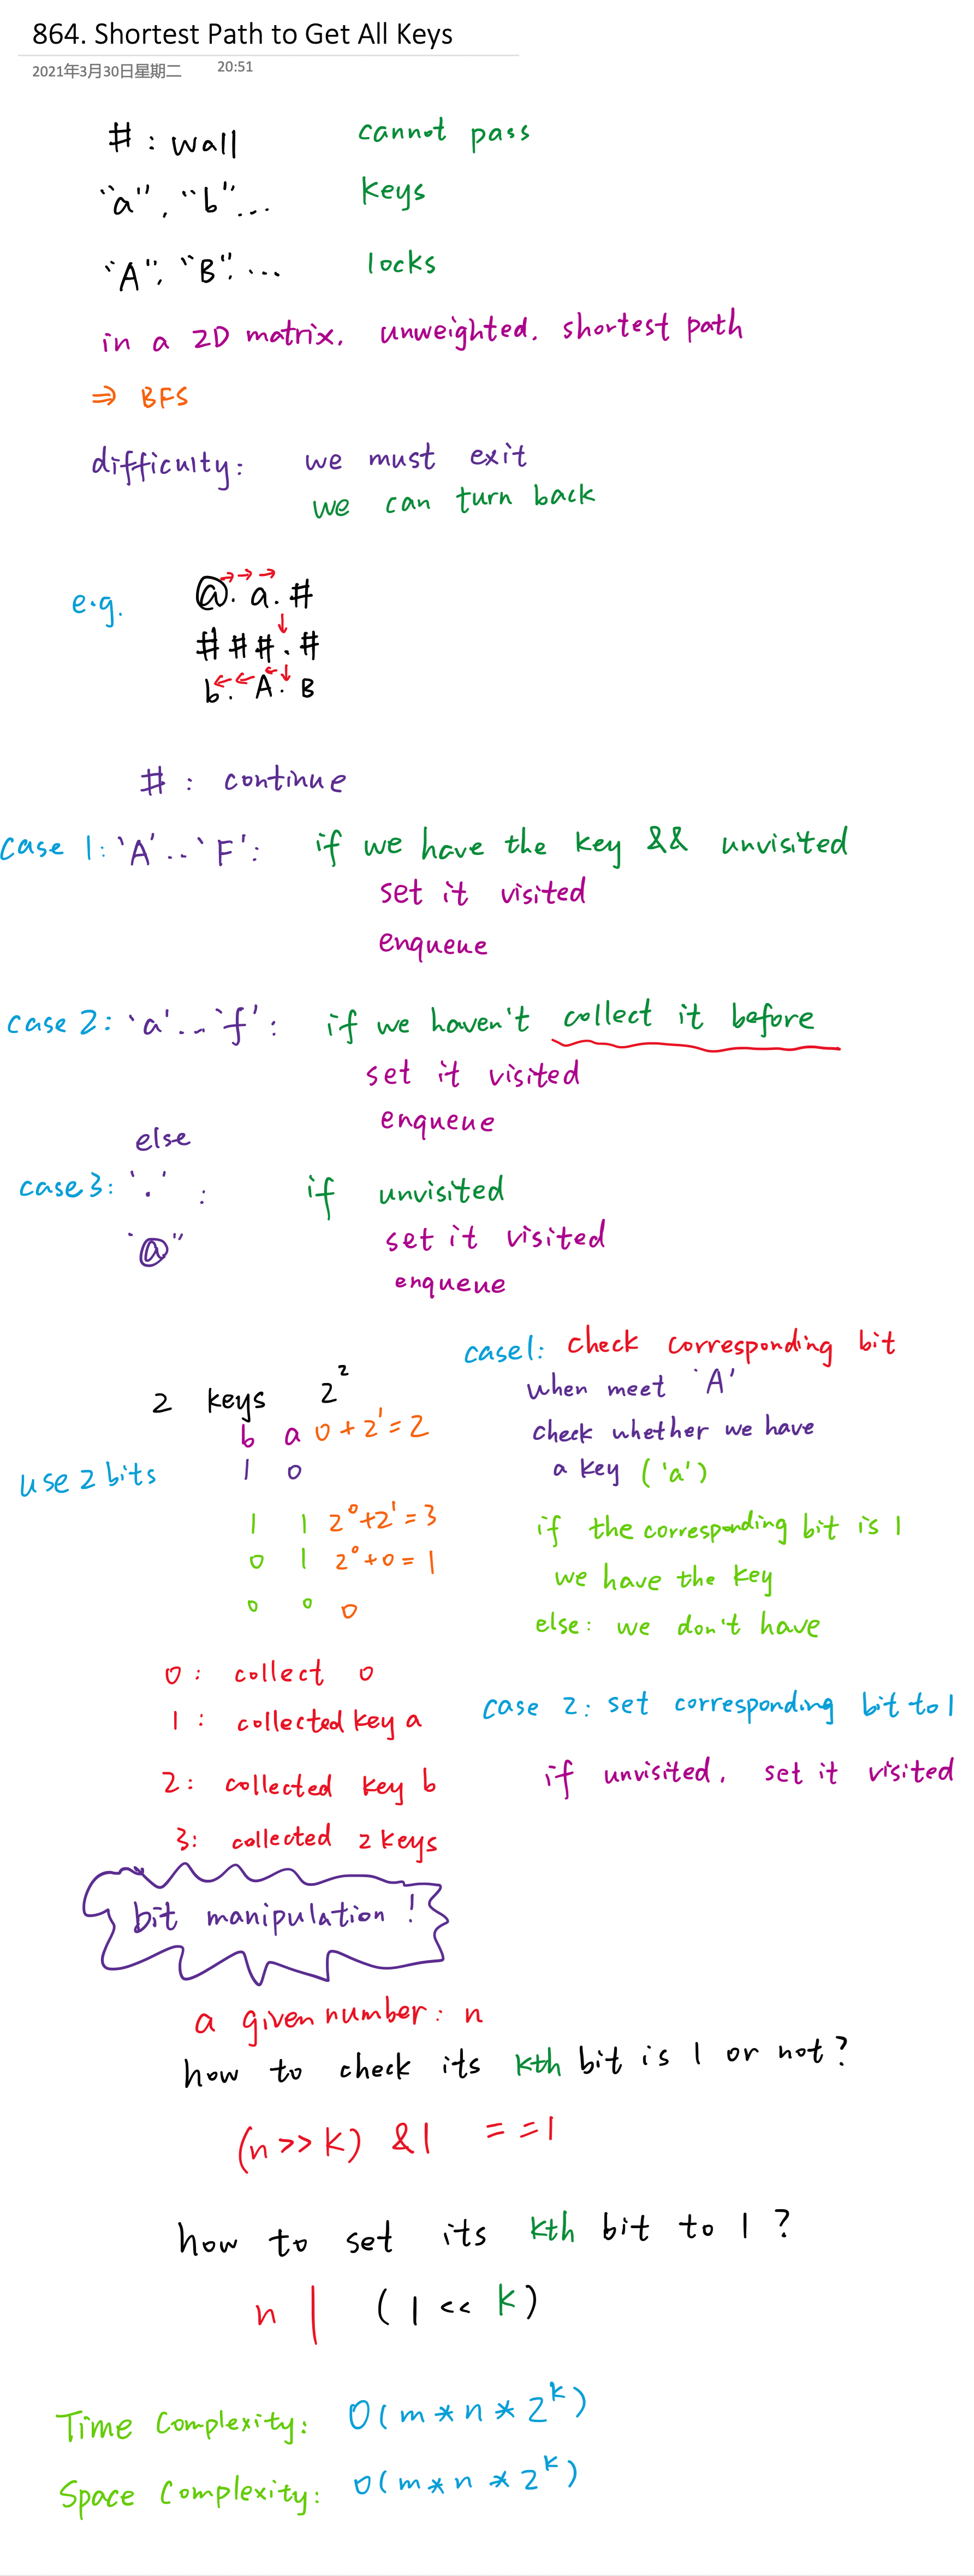 864. Shortest Path to Get All Keys
2021年3月30日星期二 20:51
# : wall cannot pass
"a", "b"... keys
"A", "B", ... locks
in a 2D matrix. unweighted. shortest path
⇒ BFS
difficulty: we must exit
we can turn back
e.g. @ . a . #
# # # . #
b . A . B
# : continue
case 1: 'A'..'F': if we have the key && unvisited
set it visited
enqueue
case 2: 'a'..'f': if we haven't collect it before
set it visited
enqueue
else
case 3: '.' : if unvisited
"@" set it visited
enqueue
2 keys 2²
b a 0 + 2¹ = 2
use 2 bits 1 0
1 1 2⁰+2¹ = 3
0 1 2⁰+0 = 1
0 0 0
0: collect 0
1: collected key a
2: collected key b
3: collected 2 keys
case1: check corresponding bit
when meet 'A'
check whether we have
a key ('a')
if the corresponding bit is 1
we have the key
else: we don't have
case 2: set corresponding bit to 1
if unvisited, set it visited
bit manipulation!
a given number: n
how to check its kth bit is 1 or not?
(n>>k) &1 ==1
how to set its kth bit to 1?
n | (1 << k)
Time Complexity: O(m*n*2^k)
Space Complexity: O(m*n*2^k)